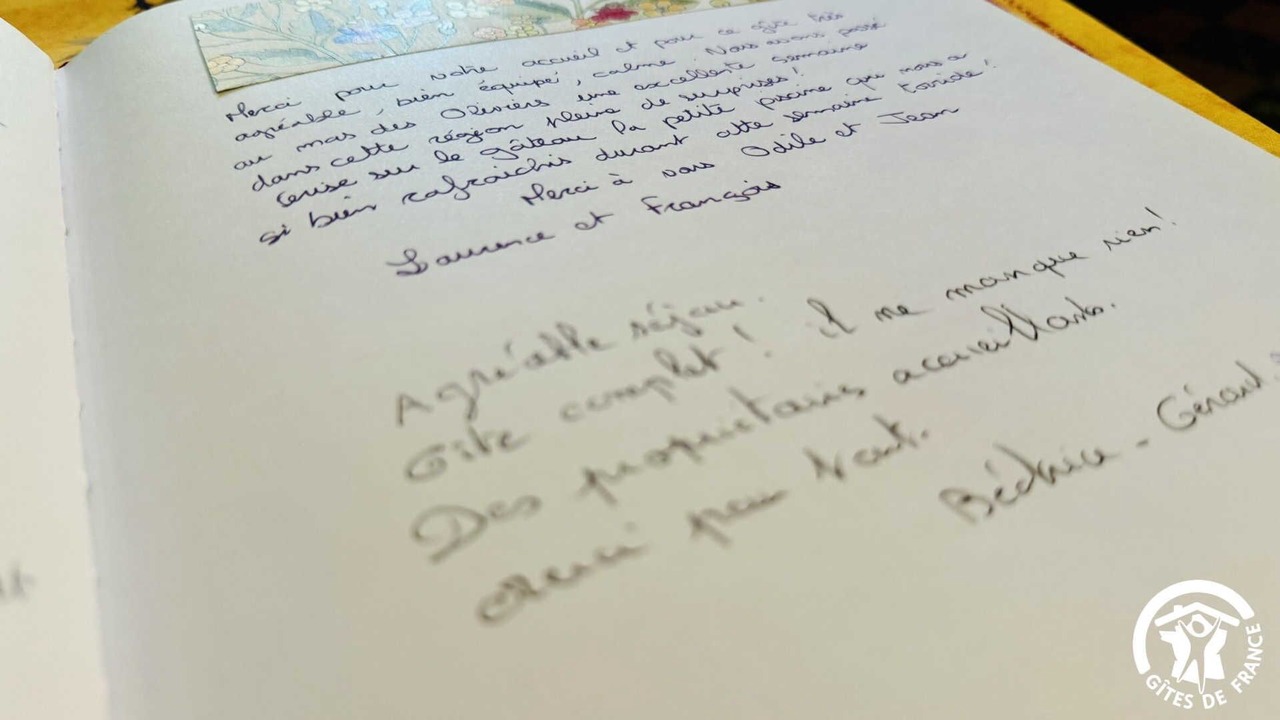 Merci pour votre accueil et pour ce gîte très
agréable, bien équipé, calme. Nous avons passé
au mas des Oliviers une excellente semaine
dans cette région pleine de surprises!
Cerise sur le gâteau la petite piscine qui nous a
si bien rafraichis durant cette semaine torride!
Merci à vous Odile et Jean
Laurence et François
Agréable séjour.
Gîte complet! il ne manque rien!
Des propriétaires accueillants.
Merci pour tout.
Béatrice - Gérard.
GÎTES DE FRANCE